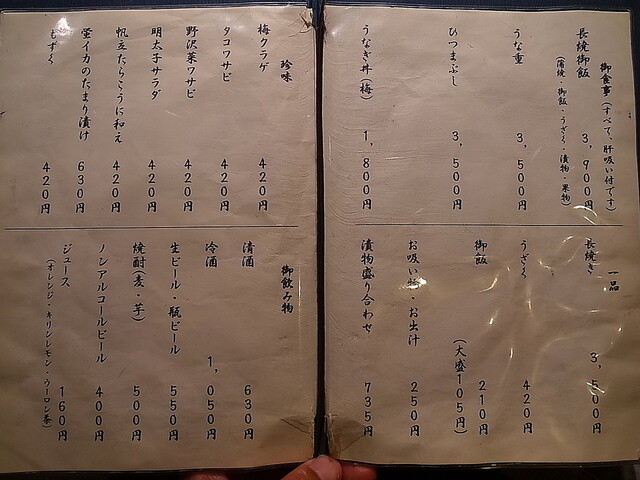 御食事(すべて、肝吸い付です)
長焼御飯 3,900円
(蒲焼・御飯・うざく・漬物・果物)
うな重 3,500円
ひつまぶし 3,500円
うなぎ丼(梅) 1,800円
一品
長焼き 3,500円
うざく 420円
御飯 210円
(大盛105円)
お吸い物・お出汁 250円
漬物盛り合わせ 735円
珍味
梅クラゲ 420円
タコワサビ 420円
野沢菜ワサビ 420円
明太子サラダ 420円
帆立たらこうに和え 420円
螢イカのたまり漬け 630円
もずく 420円
御飲み物
清酒 630円
冷酒 1,050円
生ビール・瓶ビール 550円
焼酎(麦・芋) 500円
ノンアルコールビール 400円
ジュース 160円
(オレンジ・キリンレモン・ウーロン茶)